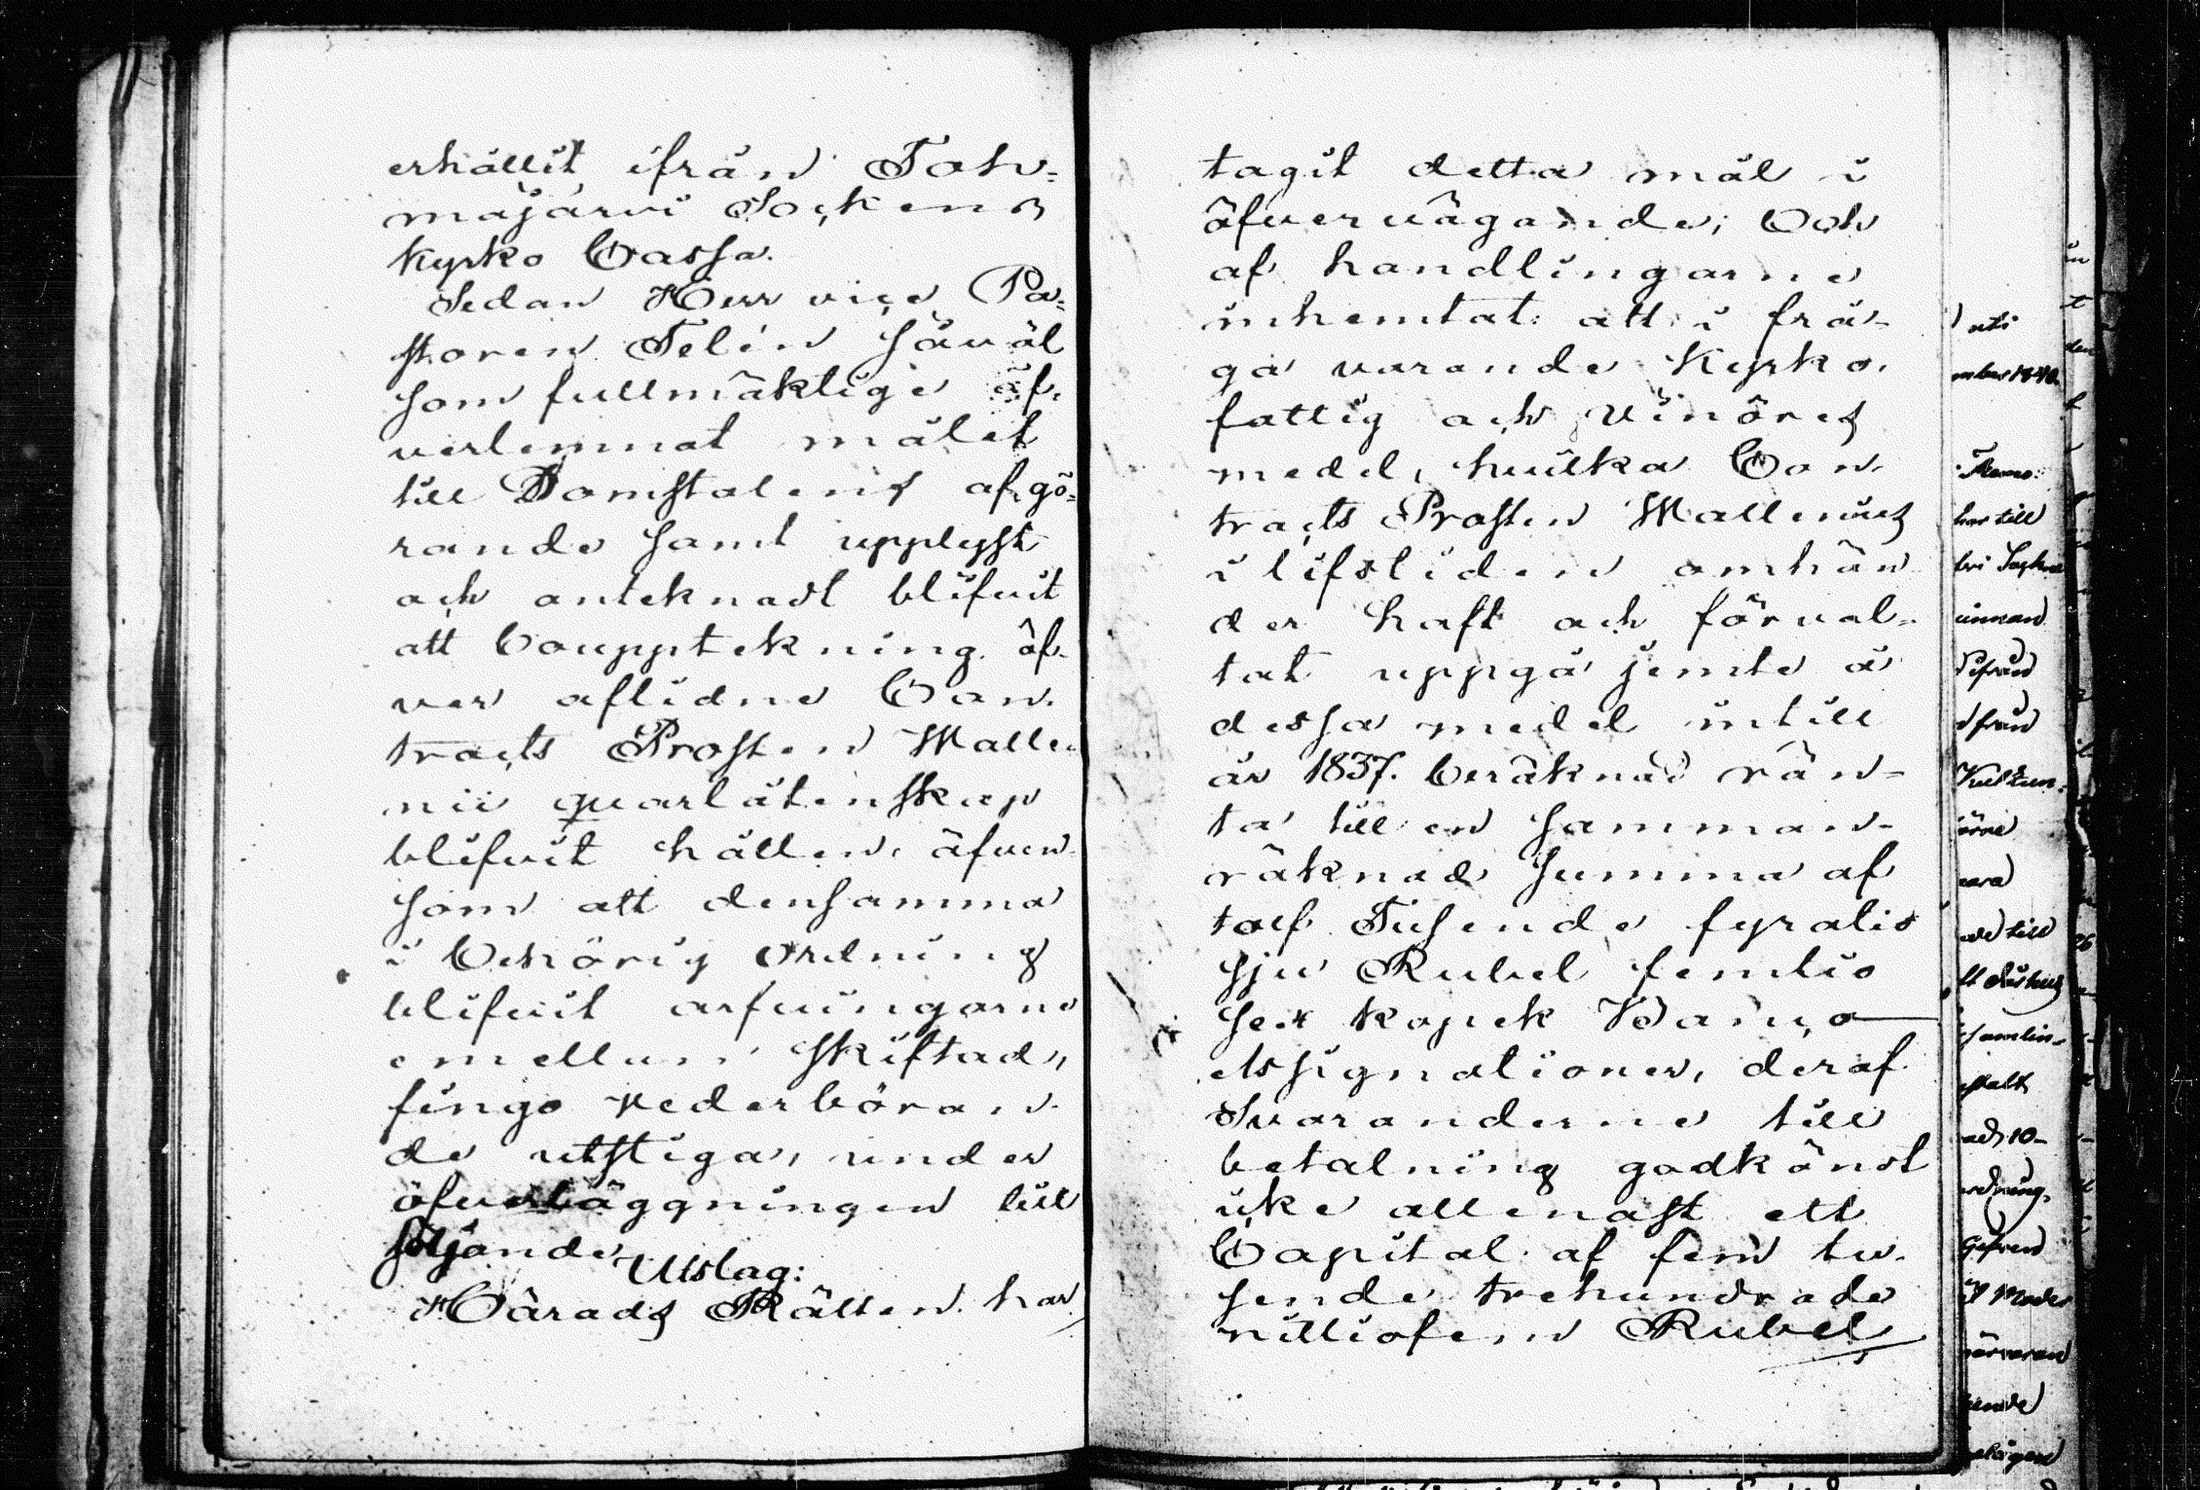 erhållit ifrån Toh-
majärvi Sockens
kyrko Cassa.
Sedan Herr vice Pa-
storen Telén såväl
som fullmäktige öf-
verlemnat målet
till Domstolens afgö-
rande samt upplyst
och antecknadt blifvit
att Bouppteckning öf-
ver aflidne Con-
tracts Prosten Walle-
nii qvarlåtenskap
blifvit hållen, äfven
som att densamma
i behörig ordning
blifvit arfvingarne
emellan skiftad,
fingo vederböran-
de utstiga, under
öfverläggningen till
följande Utslag:
Härads Rätten har
tagit detta mål i
öfvervägande; Och
af handlingarne
inhemtat: att i frå-
ga varande Kyrko,
fattig och Vinöres
medel, hvilka Con-
tracts Prosten Wallenius
i lifstiden omhän
der haft och förval-
tat uppgå jemte å
dessa medel intill
år 1837. beräknad rän-
ta till en samman-
räknad summa af
tolf Tusende fyratio
sju Rubel femtio
sex kopek Banco
Assignationer, deraf
Svaranderne till
betalning godkänst
icke allenast ett
Capital af fem tu-
sende trehundrade
nittiofem Rubel
uti
har till
innan
ifrån
från